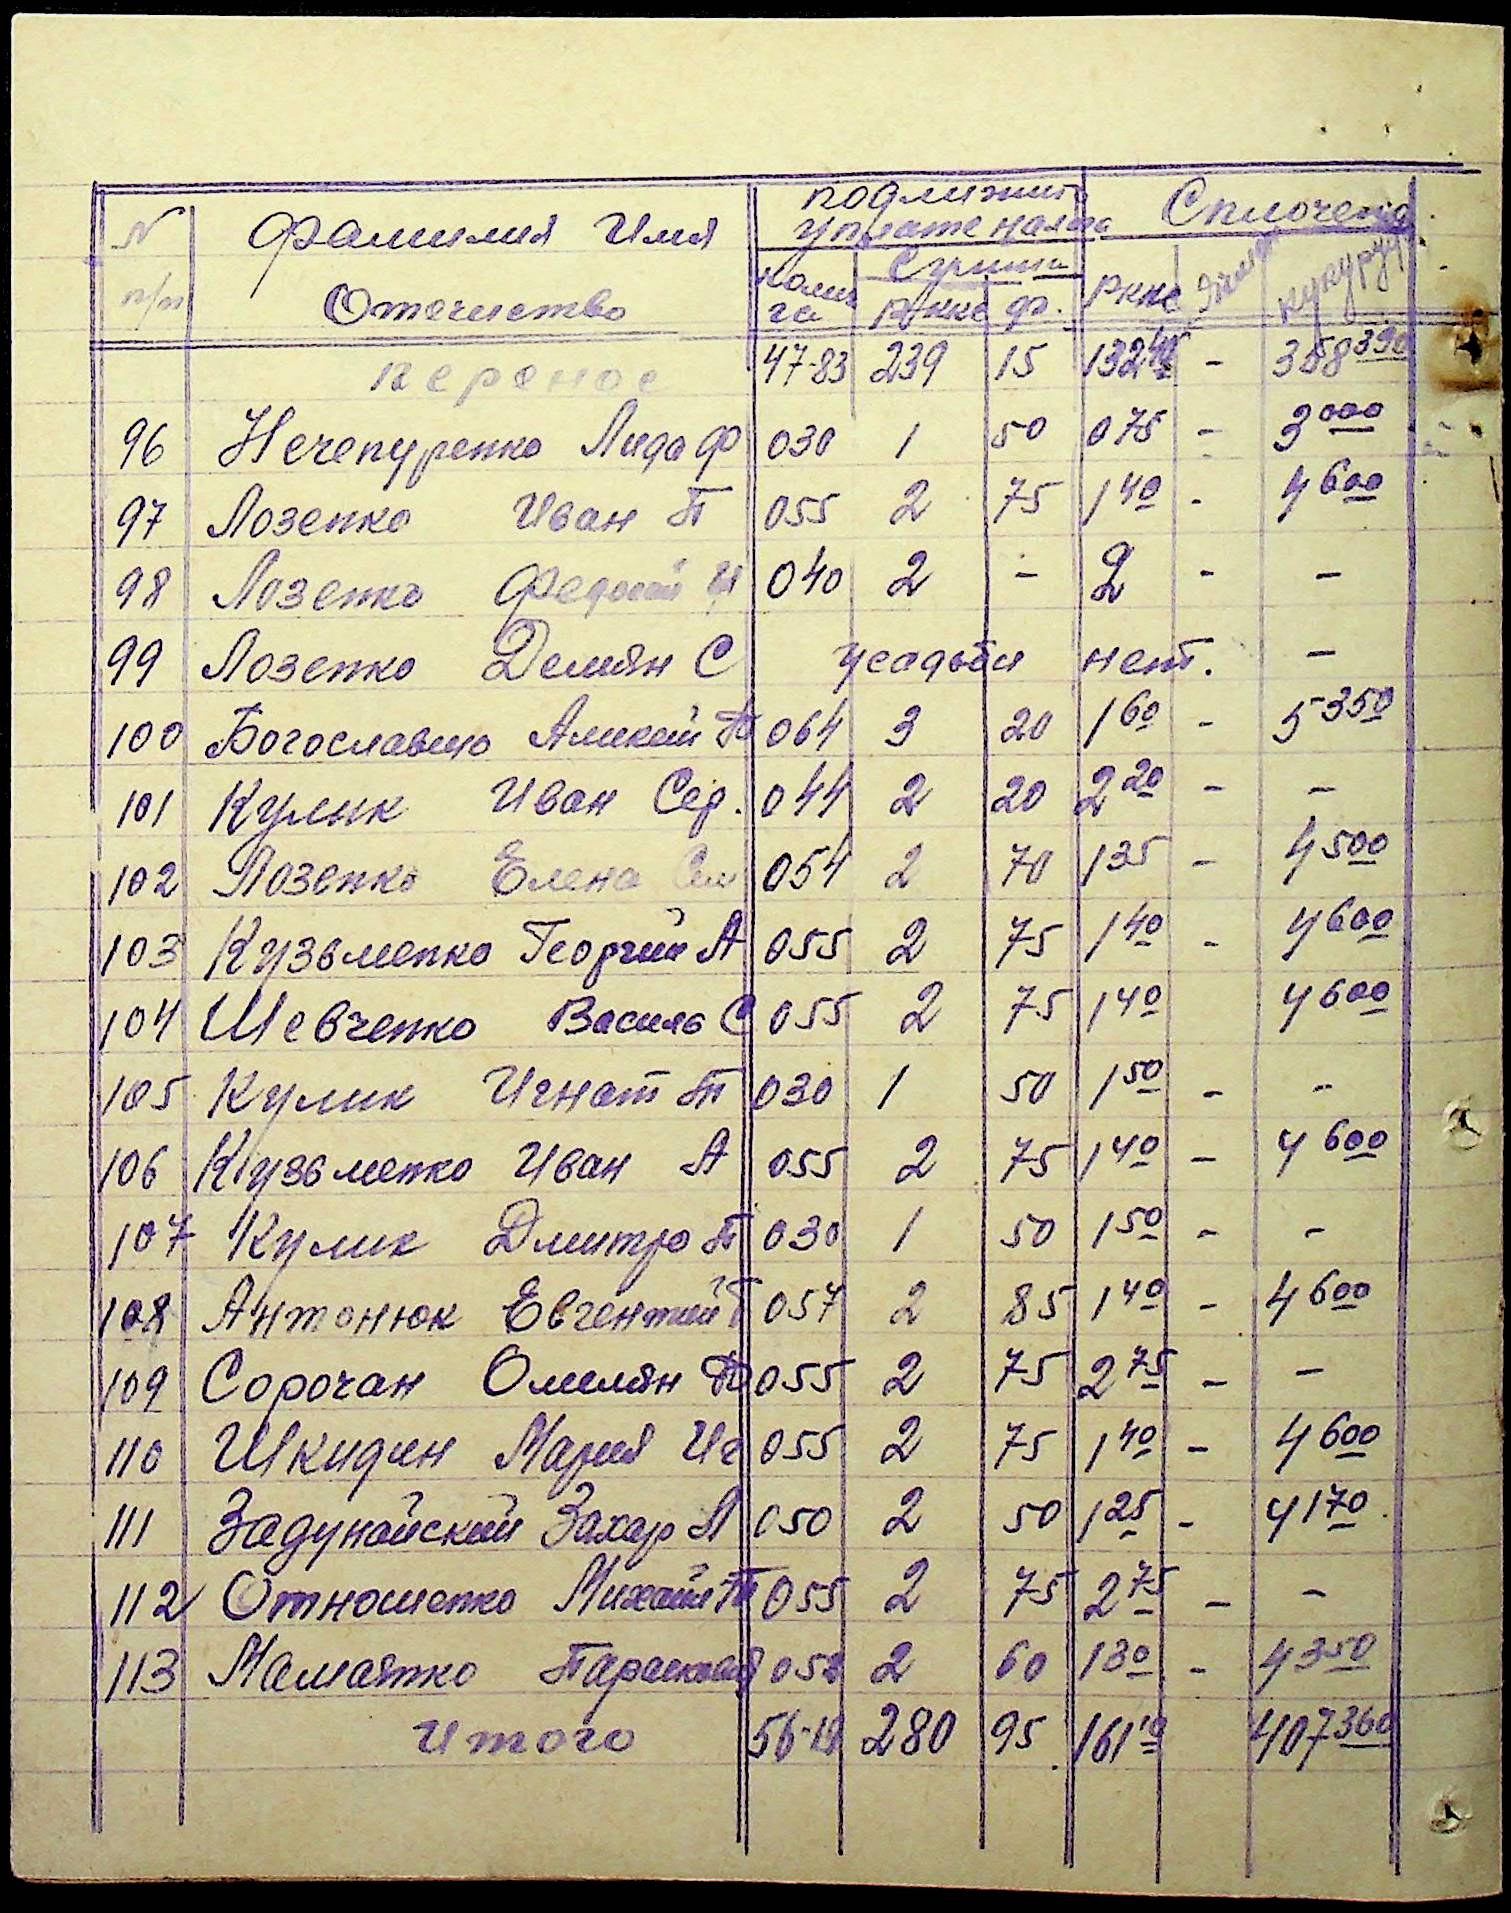 N п/п Фамилия Имя Отчество подлижит уплате налога Сплочено
колич га Сумма РККС ф. РККС Ячмен кукуруз
перенос 47-83 239 15 132 - 358 390
96 Нечепуренко Лида Ф 030 1 50 0 75 - 3 000
97 Лозенко Иван П 055 2 75 1 40 - 4 600
98 Лозенко Федосий 040 2 - 2 - -
99 Лозенко Демян С усадьби нет. -
100 Богославшо Аликсий П 064 3 20 1 60 - 5 350
101 Кулик Иван Сер. 044 2 20 2 20 - -
102 Лозенко Елена Сем 054 2 70 1 35 - 4 500
103 Кузьменко Георгий А 055 2 75 1 40 - 4 600
104 Шевченко Василь С 055 2 75 1 40 4 600
105 Кулик Игнат П 030 1 50 1 50 - -
106 Кузьменко Иван А 055 2 75 1 40 - 4 600
107 Кулик Дмитро П 030 1 50 1 50 - -
108 Антонюк Евгентий Г 057 2 85 1 40 - 4 600
109 Сорочан Омилян Ф 055 2 75 2 75 - -
110 Шкидин Мария Иг 055 2 75 1 40 - 4 600
111 Задунайский Захар Л 050 2 50 1 25 - 4 170
112 Отношенко Михаил П 055 2 75 2 75 - -
113 Маматко Парасковья 052 2 60 1 30 - 4 350
Итого 56-19 280 95 161 10 407 360